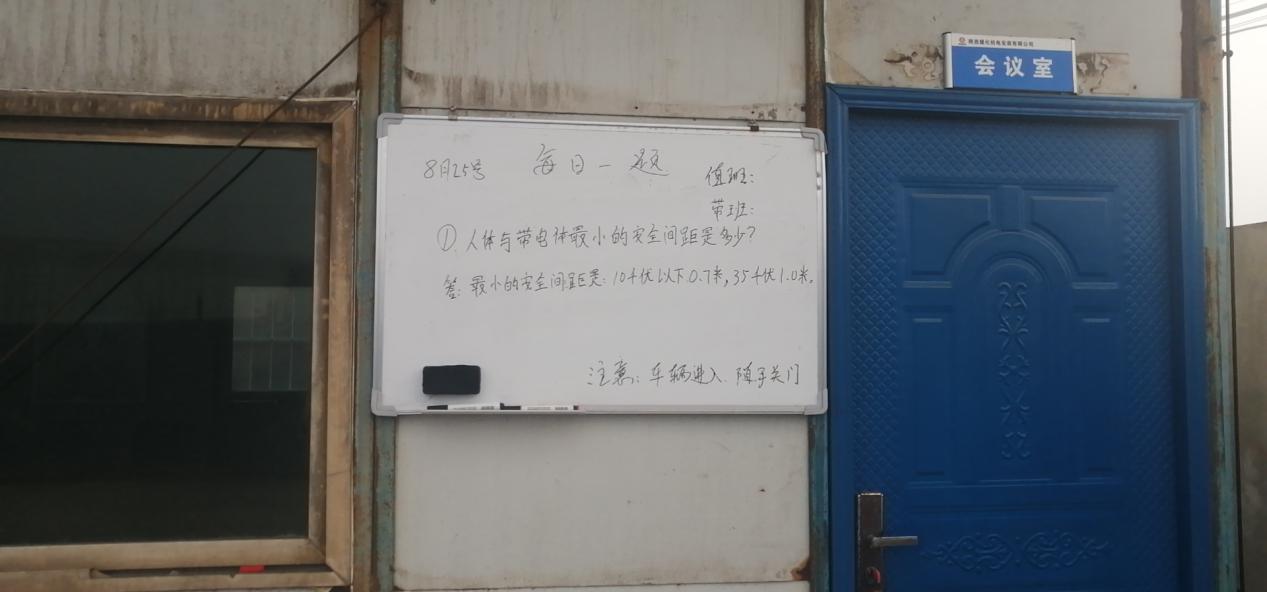 会议室
8月25号 每日一题
值班:
带班:
①、人体与带电体最小的安全间距是多少?
答:最小的安全间距是:10千伏以下0.7米,35千伏1.0米。
注意:车辆进入.随手关门